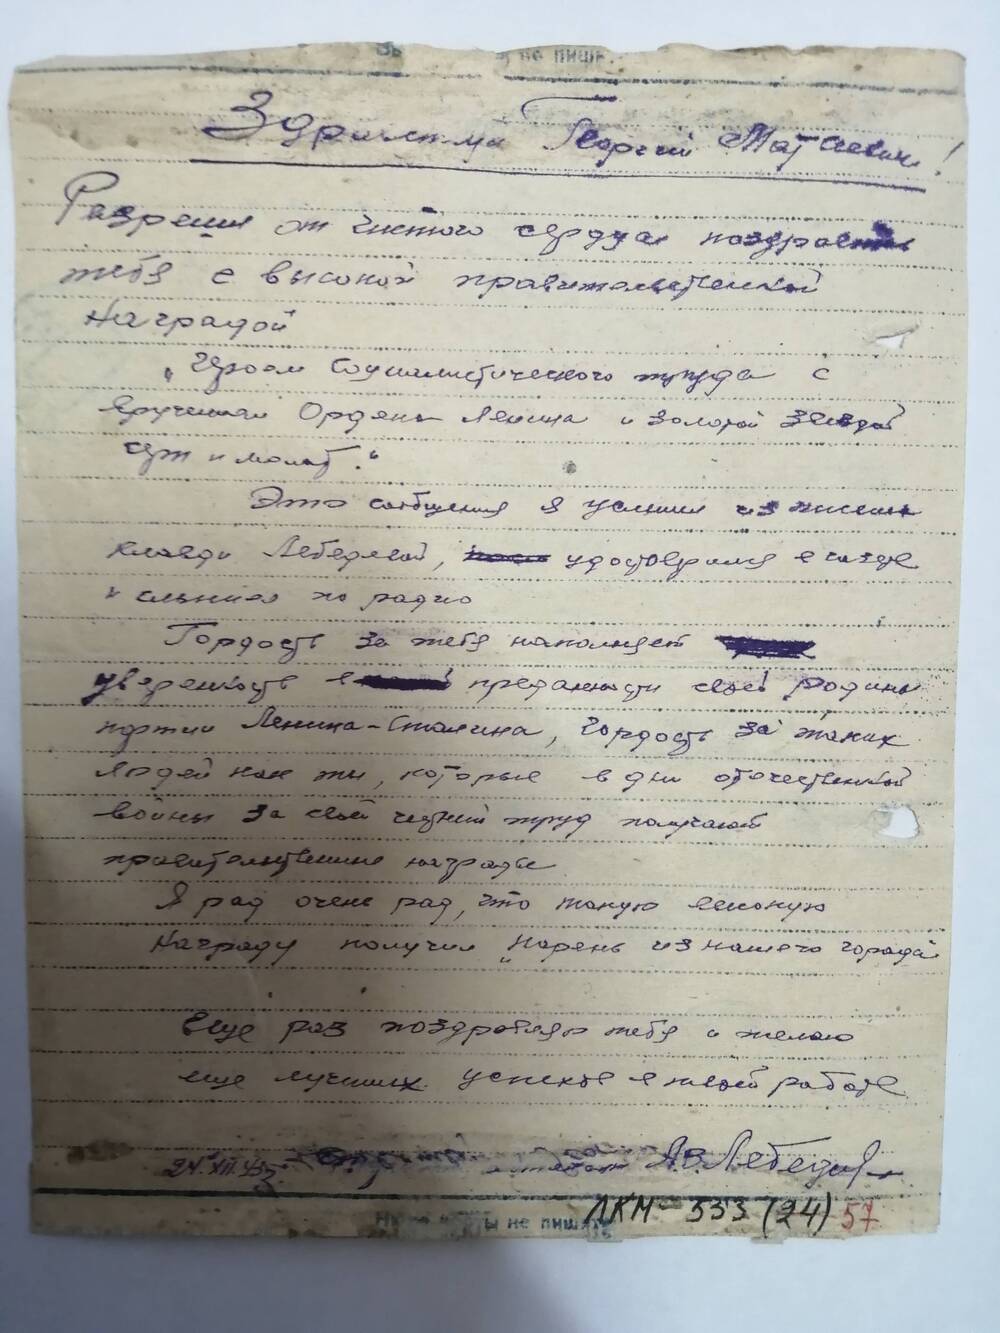 не пиш
Здравствуй Георгий Матвеевич!
Разреши от чистого сердца поздравить
тебя с высокой правительственной
Наградой
„Героем Социалистического труда с
вручением Ордена Ленина и золотой звездой
серп и молот."
Это сообщения я услышал из письма
Клавди Лебедевой, удостоверился в газете
и слышал по радио
Гордость за тебя наполняет
уверенность в преданности своей Родины
партии Ленина-Сталина, гордость за таких
людей как ты, которые в дни отечественной
войны за свой честный труд получают
правительственные награды
Я рад очень рад, что такую высокую
Награду получил „парень из нашего города"
Еще раз поздравляю тебя и желаю
еще лучших успехов в твоей работе
24.XII.43г. А.В. Лебедев
Ни не пишать
ЛКМ-533 (24) 57